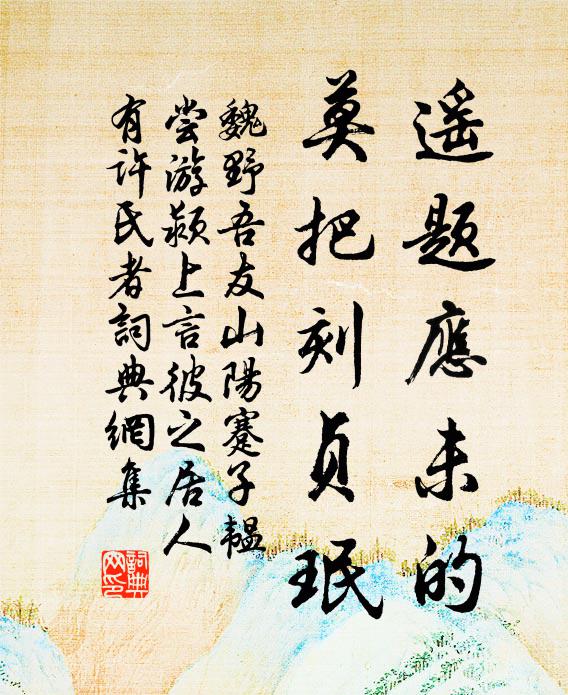 遥题應未的
莫把刻貞珉
魏野吾友山陽蹇子韞
尝游颍上言彼之居人
有许氏者詞典網集
詞典网印